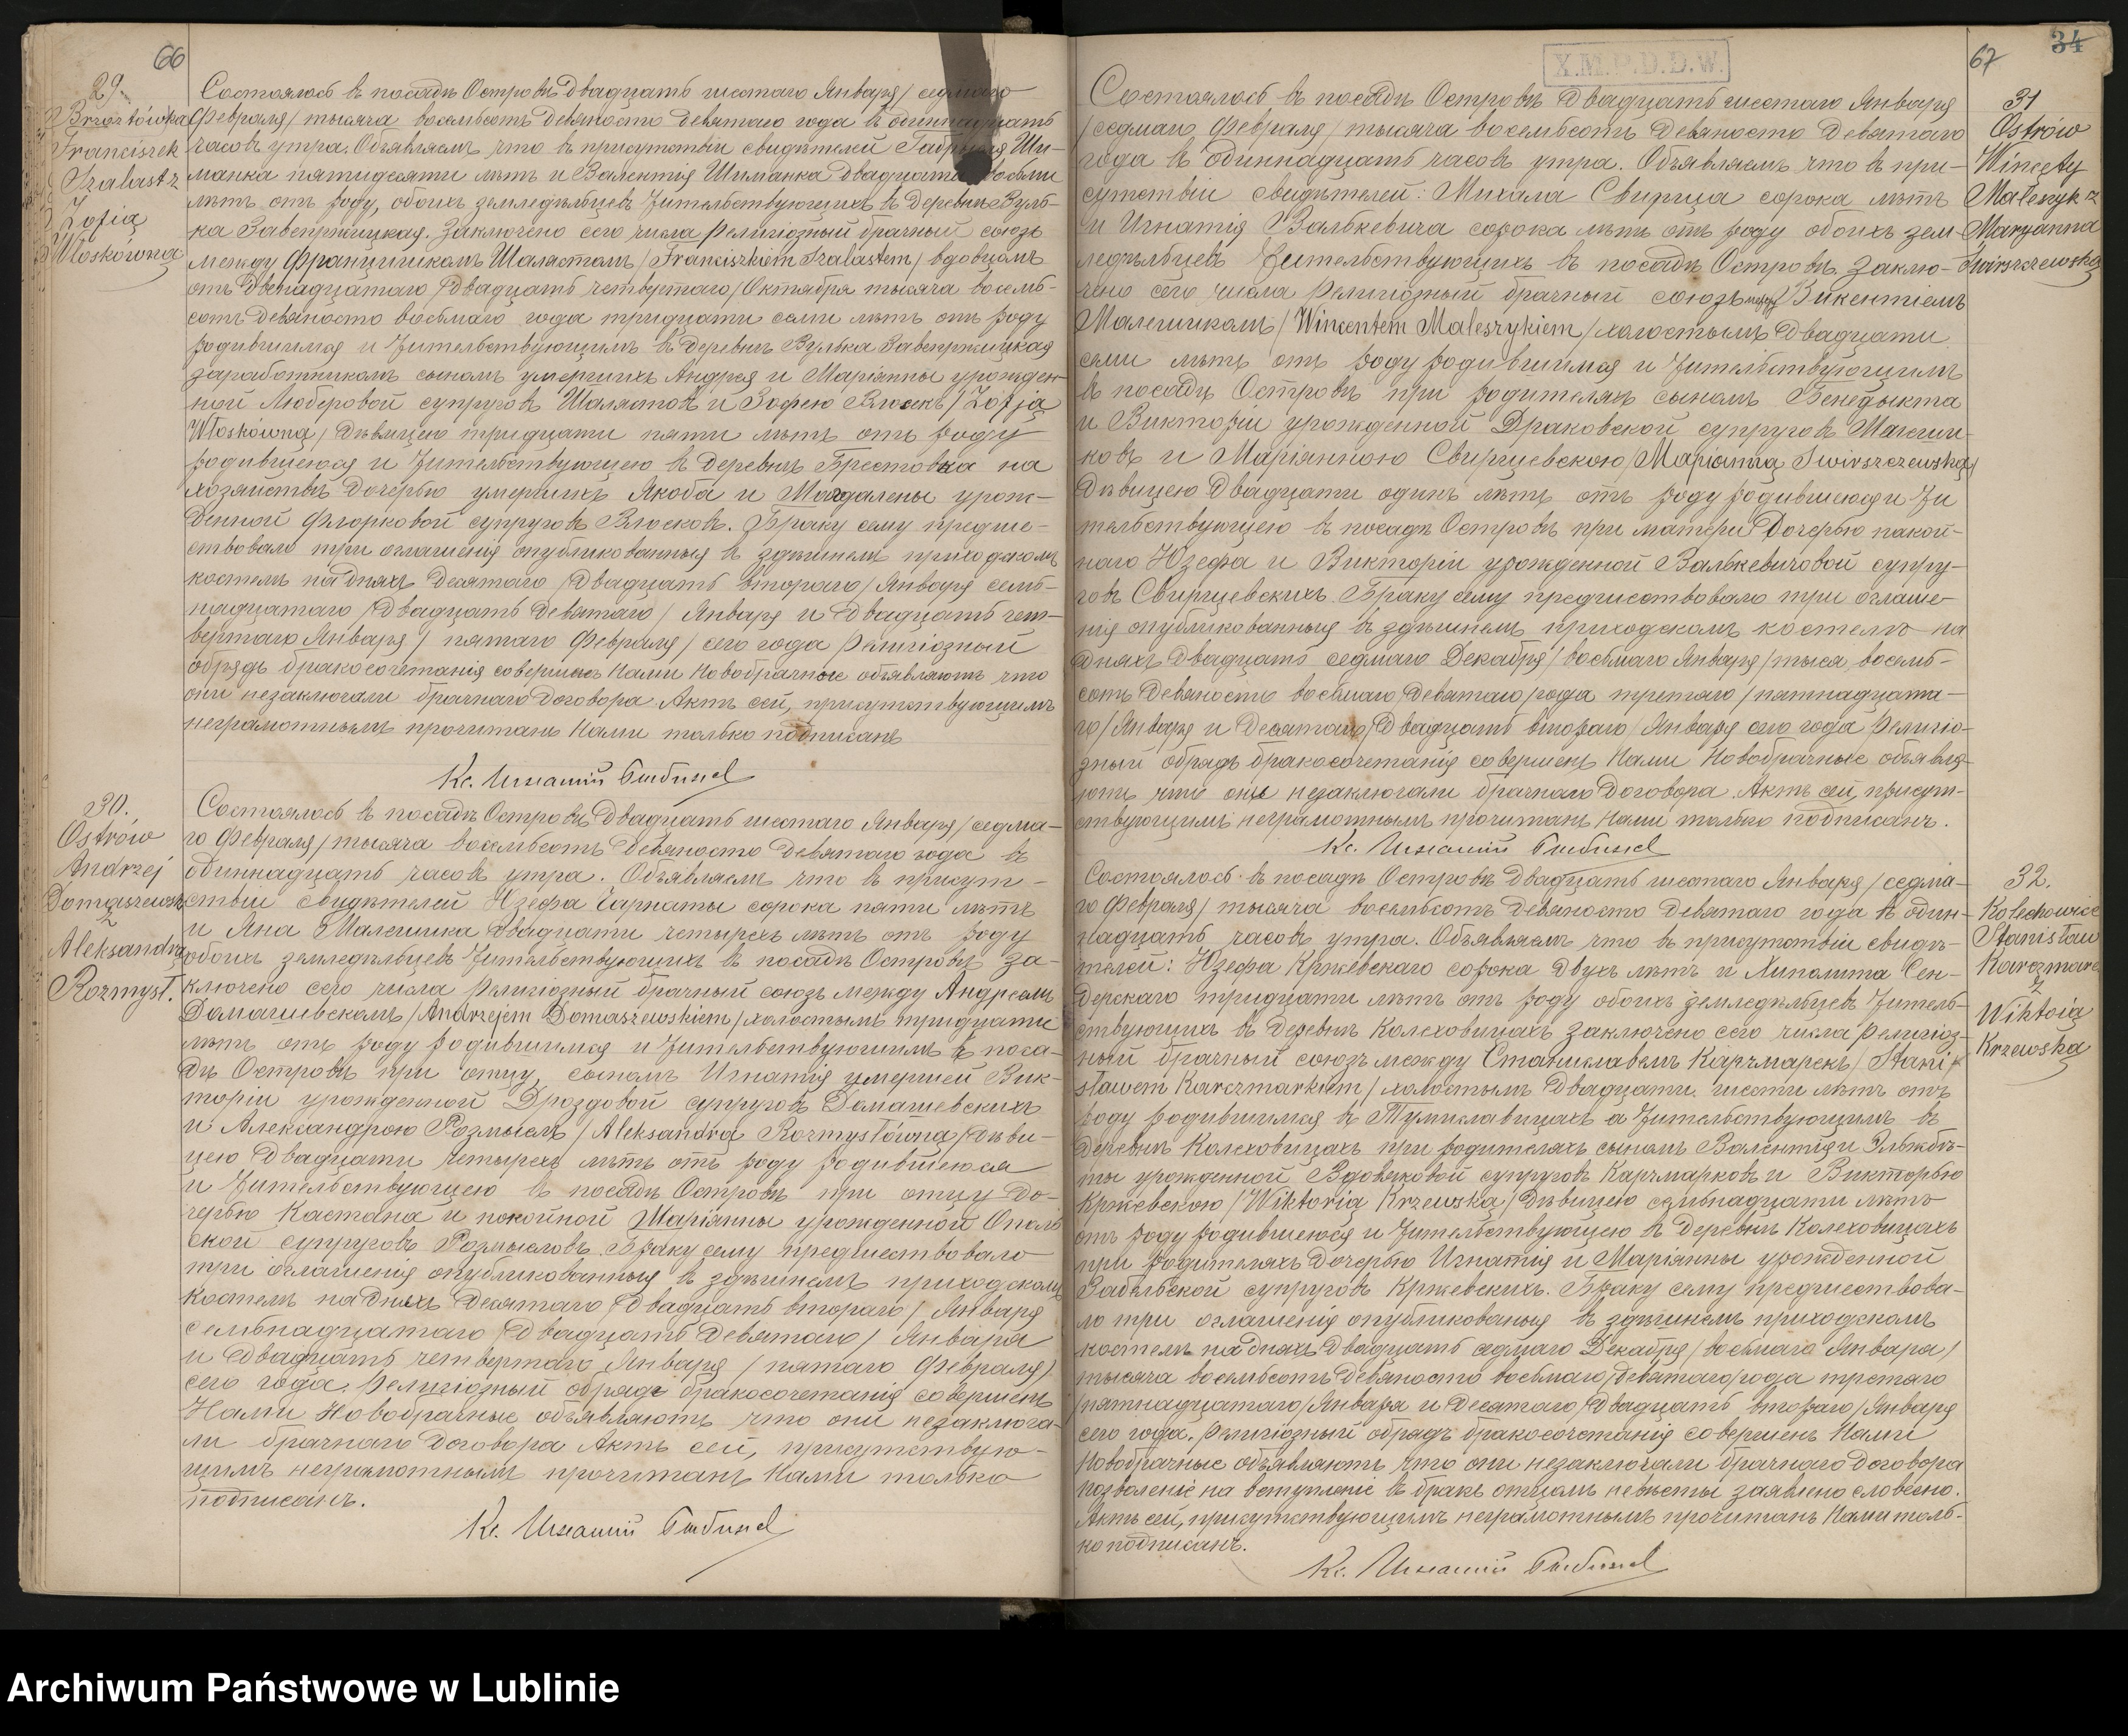 66
29.
Brzostówka
Franciszek
Szalast z
Zofią
Włoskówną
Состоялось въ посадѣ Островѣ двадцать шестаго Января / седмаго
Февраля / тысяча восемьсотъ девяносто девятаго года въ одиннадцать
часовъ утра. Объявляемъ что въ присутствіи свидѣтелей Габрыеля Ши-
манка пятидесяти лѣтъ и Валентія Шиманка двадцати восьми
лѣтъ отъ роду, обоихъ земледѣльцевъ жительствующихъ въ деревне Вуль-
ка Завепржицкая. Заключено сего числа религіозный брачный союзъ
между Францишкомъ Шаластомъ / Franciszkiem Szalastem / вдовцомъ
отъ двенадцатаго / двадцать четвертаго / Октября тысяча восемь-
сотъ девяносто восьмаго года тридцати семи лѣтъ отъ роду
родившимся и жительствующимъ въ деревнѣ Вулька Завепржицкая
заработникомъ сыномъ умершихъ Андрея и Маріянны урожден-
ной Люберовой супруговъ Шаластовъ и Зофею Влосекъ / Zofją
Włoskówną / дѣвицею тридцати пяти лѣтъ отъ роду
родившеюся и жительствующею въ деревнѣ Брестовка на
хозяйствѣ дочерью умершихъ Якоба и Магдалены урож-
денной Флорковой супруговъ Влосковъ. Браку сему предше-
ствовало три оглашенія опубликованныя въ здѣшнемъ приходскомъ
костелѣ на дняхъ десятаго / двадцать втораго / Января семь-
надцатаго / двадцать девятаго / Января и двадцать чет-
вертаго Января / пятаго Февраля / сего года религіозный
обрядъ бракосочетанія совершенъ Нами Новобрачные объявляютъ что
они незаключали брачнаго договора Актъ сей, присутствующимъ
неграмотнымъ прочитанъ Нами только подписанъ
Кс. Игнатій
30.
Ostrów
Andrzej
Domaszewski
z
Aleksandrą
Rozmysł.
Состоялось въ посадѣ Островѣ двадцать шестаго Января / седма-
го Февраля / тысяча восемьсотъ девяносто девятаго года въ
одиннадцать часовъ утра. Объявляемъ что въ присут-
ствіи свидѣтелей Юзефа Чарнаты сорока пяти лѣтъ
и Яна Малешика двадцати четырехъ лѣтъ отъ роду
обоихъ земледѣльцевъ жительствующихъ въ посадѣ Островѣ за-
ключено сего числа религіозный брачный союзъ между Андреемъ
Домашевскомъ / Andrzejem Domaszewskiem / холостымъ тридцати
лѣтъ отъ роду родившимся и жительствующимъ въ поса-
дѣ Островѣ при отцу, сыномъ Игнатія умершей Вик-
торіи урожденной Дроздовой супруговъ Домашевскихъ
и Александрою Розмыслъ / Aleksandrą Rozmysłówną / дѣви-
цею двадцати четырехъ лѣтъ отъ роду родившеюся
и жительствующею въ посадѣ Островѣ при отцу до-
черью Каетана и покойной Маріянны урожденной Ополь
ской супруговъ Розмысловъ. Браку сему предшествовало
три оглашенія опубликованныя въ здѣшнемъ приходскомъ
костелѣ на дняхъ десятаго / двадцать втораго / Января
семьнадцатаго / двадцать девятаго / Января
и двадцать четвертаго Января / пятаго Февраля /
сего года. религіозный обрядъ бракосочетанія совершенъ
Нами Новобрачные объявляютъ что они незаключа-
ли брачнаго договора Актъ сей, присутствую-
щимъ неграмотнымъ прочитанъ Нами только
подписанъ.
Кс. Игнатій
X.M.P.D.D.W.
67
34
31
Ostrów
Wincęty
Małeszyk z
Maryanną
Świrszczewską
Состоялось въ посадѣ Островѣ двадцать шестаго Января
/ седмаго Февраля / тысяча восемьсотъ девяносто девятаго
года въ одиннадцать часовъ утра. Объявляемъ что въ при-
сутствіи свидѣтелей: Михала Свирща сорока лѣтъ
и Игнатія Валькевича сорока лѣтъ отъ роду обоихъ зем-
ледѣльцевъ жительствующихъ въ посадѣ Островѣ. Заклю-
чено сего числа религіозный брачный союзъ между Викентіемъ
Малешикомъ / Wincentem Maleszykiem / холостымъ двадцати
семи лѣтъ отъ роду родившимся и жительствующимъ
въ посадѣ Островѣ при родителяхъ сыномъ Бенедыкта
и Викторіи урожденной Драковской супруговъ Малеши-
ковъ и Маріянною Свирщевскою / Marianną Swirszczewską /
дѣвицею двадцати одинъ лѣтъ отъ роду родившеюся и жи
тельствующею въ посадѣ Островѣ при матери дочерью покой-
наго Юзефа и Викторіи урожденной Валькевичовой супру-
говъ Свирщевскихъ. Браку сему предшествовало три оглаше-
нія опубликованныя въ здѣшнемъ приходскомъ костелѣ на
дняхъ двадцать седмаго Декабря / восьмаго Января / тыся восемь-
сотъ девяносто восьмаго / девятаго / года третяго / пятнадцата-
го / Января и десятаго / двадцать втораго / Января сего года Религіо-
зный обрядъ бракосочетанія совершенъ Нами Новобрачные объявля-
ютъ что они незаключали брачнаго договора. Актъ сей, присут-
ствующимъ неграмотнымъ прочитанъ Нами только подписанъ.
Кс. Игнатій
32.
Kolechowice
Stanisław
Karczmarek
z
Wiktoią
Krzewską
Состоялось въ посадѣ Островѣ двадцать шестаго Января / седма-
го Февраля / тысяча восемьсотъ девяносто девятаго года въ один-
надцать часовъ утра. Объявляемъ что въ присутствіи свидѣ-
телей: Юзефа Кржевскаго сорока двухъ лѣтъ и Хиполита Сен-
дерскаго тридцати лѣтъ отъ роду обоихъ земледѣльцевъ житель-
ствующихъ въ деревнѣ Колеховицахъ заключено сего числа религіоз-
ный брачный союзъ между Станиславемъ Карчмарекъ / Stani-
sławem Karczmarkiem / холостымъ двадцати шести лѣтъ отъ
роду родившимся въ Тумиславицахъ а жительствующимъ въ
деревнѣ Колеховицахъ при родителяхъ сыномъ Валентія и Эльжбѣ-
ты урожденной Вдовяковой супруговъ Карчмарковъ и Викторью
Кржевскою / Wiktorią Krzewską / дѣвицею семьнадцати лѣтъ
отъ роду родившеюся и жительствующею въ деревнѣ Колеховицахъ
при родителяхъ дочерью Игнатія и Маріянны урожденной
Забѣльской супруговъ Кржевскихъ. Браку сему предшествова-
ло три оглашенія опубликованыя въ здѣшнемъ приходскомъ
костелѣ на дняхъ двадцать седмаго Декабря / восьмаго Января /
тысяча восемьсотъ девяносто восьмаго / девятаго / года третяго
/ пятнадцатаго / Января и десятаго / двадцать втораго / Января
сего года. религіозный обрядъ бракосочетанія совершенъ Нами
Новобрачные объявляютъ что они незаключали брачнаго договора
позволеніе на вступленіе въ бракъ отцомъ невѣсты заявлено словесно.
Актъ сей, присутствующимъ неграмотнымъ прочитанъ Нами толь-
ко подписанъ.
Кс. Игнатій
Archiwum Państwowe w Lublinie